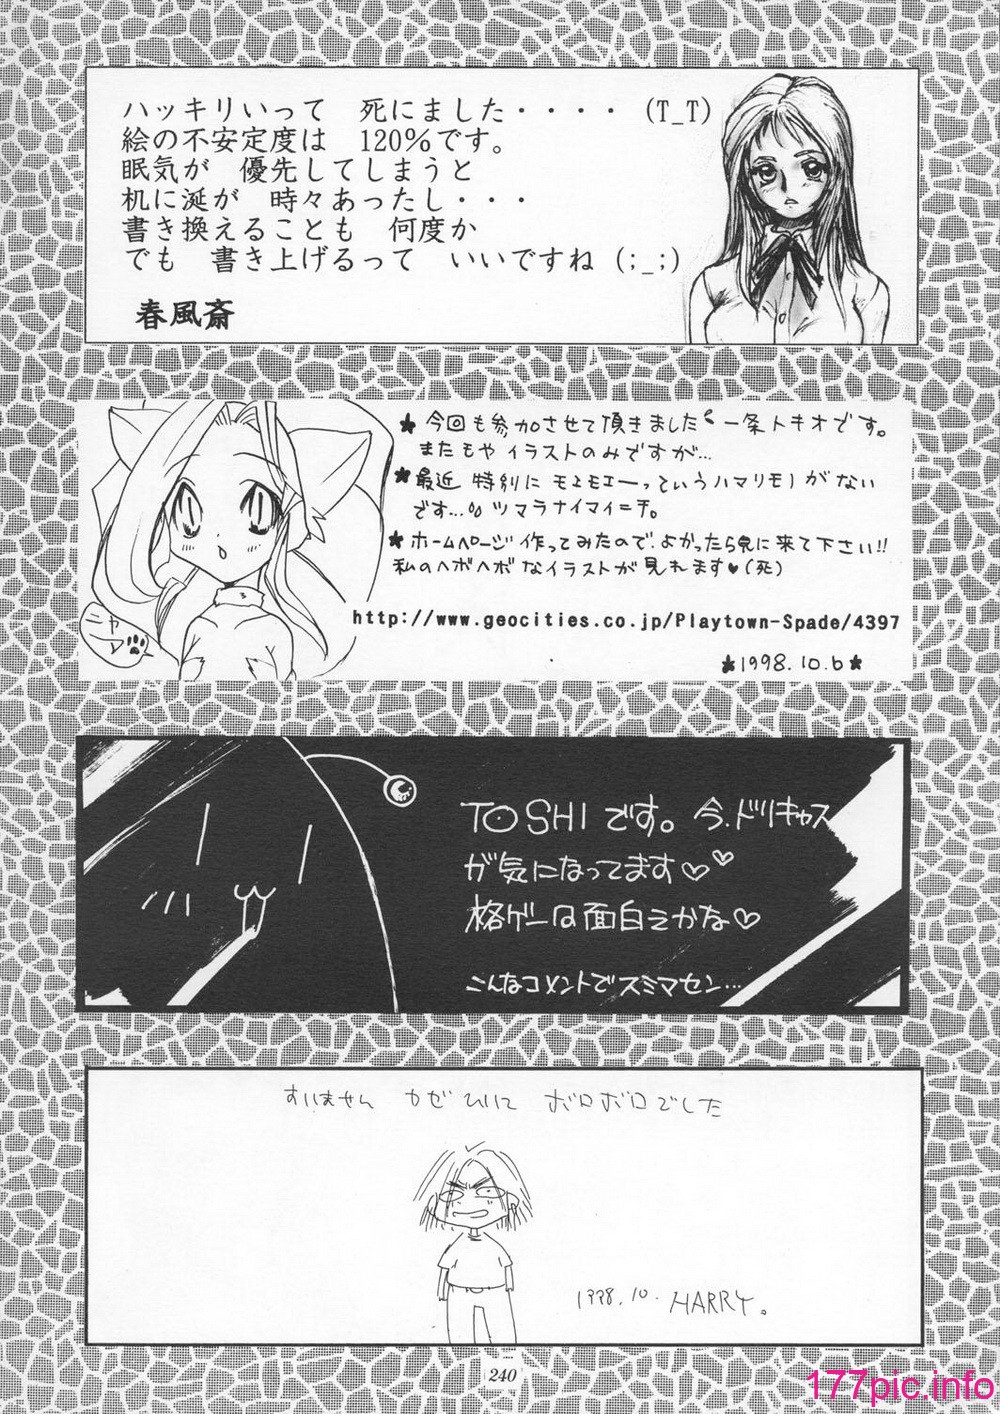 ハッキリいって　死にました・・・・ (T_T)
絵の不安定度は　120%です。
眠気が　優先してしまうと
机に涎が　時々あったし・・・
書き換えることも　何度か
でも　書き上げるって　いいですね (;_;)
春風斎
★今回も参加させて頂きました 一条トキオです。
またもや イラストのみですが…
★最近 特別に モエモエーっていうハマリモノがない
です… ツマラナイマイニチ。
★ホームページ 作ってみたので、よかったら見に来て下さい!!
私のヘボヘボなイラストが見れます♥(死)
ニャ
マ
http://www.geocities.co.jp/Playtown-Spade/4397
★1998.10.6★
TOSHIです。今、ドリキャス
が気になってます♡♡
格ゲーは面白そかな♡
こんなコメントでスミマセン…
すいません かぜひいて ボロボロでした
1998.10. HARRY。
240
177pic.info